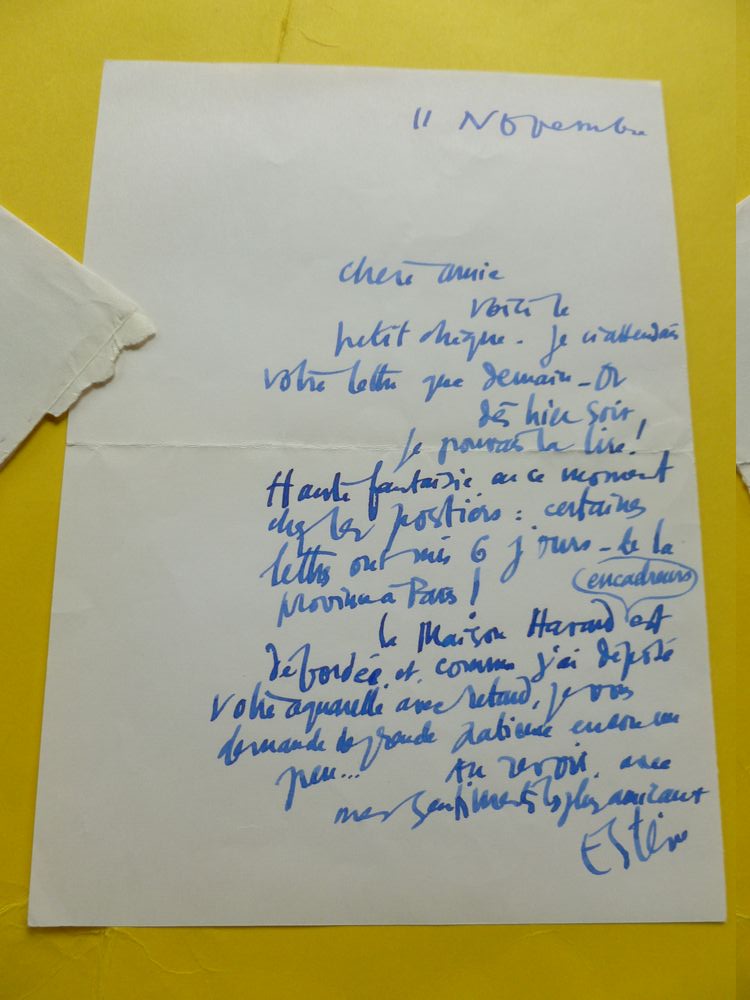 11 Novembre
chère amie
voici le
petit chèque. Je n'attendais
votre lettre que demain - Or
dès hier soir,
je pouvais la lire!
Haute fantaisie en ce moment
chez les postiers : certaines
lettres ont mis 6 jours - de la
province à Paris!
encadreurs
la Maison Havard est
débordée et, comme j'ai déposé
votre aquarelle avec retard, je vous
demande de grande patience encore un
peu... Au revoir, avec
mes sentiments les plus amicaux
Estève